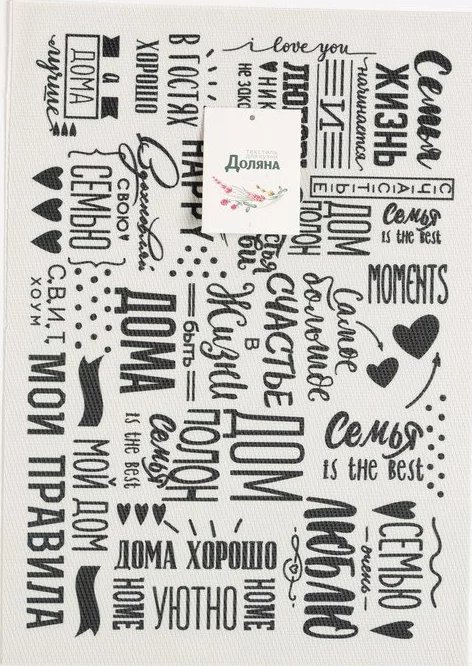 i love you
Семья
ЖИЗНЬ
начинается
И
ЛЮБОВЬ
НИК
не зак
В ГОСТЯХ
ХОРОШО
а
ДОМА
лучше
НАРРУ
ТЕКСТИЛЬ
ДЛЯ КУХНИ
ДОЛЯНА
СЧАСТЬЕ
Семья
is the best
ДОМ
ПОЛОН
Вдохновляй
свою
СЕМЬЮ
MOMENTS
Самое
большое
СЧАСТЬЕ
В
Жизни
быть
ДОМА
С.В.И.Т.
ХОУМ
МОИ ПРАВИЛА
Семья
is the best
ДОМ
ПОЛОН
Семья
is the best
МОЙ ДОМ
ДОМА ХОРОШО
HOME
УЮТНО
HOME
ЛЮБЛЮ
очень
СЕМЬЮ